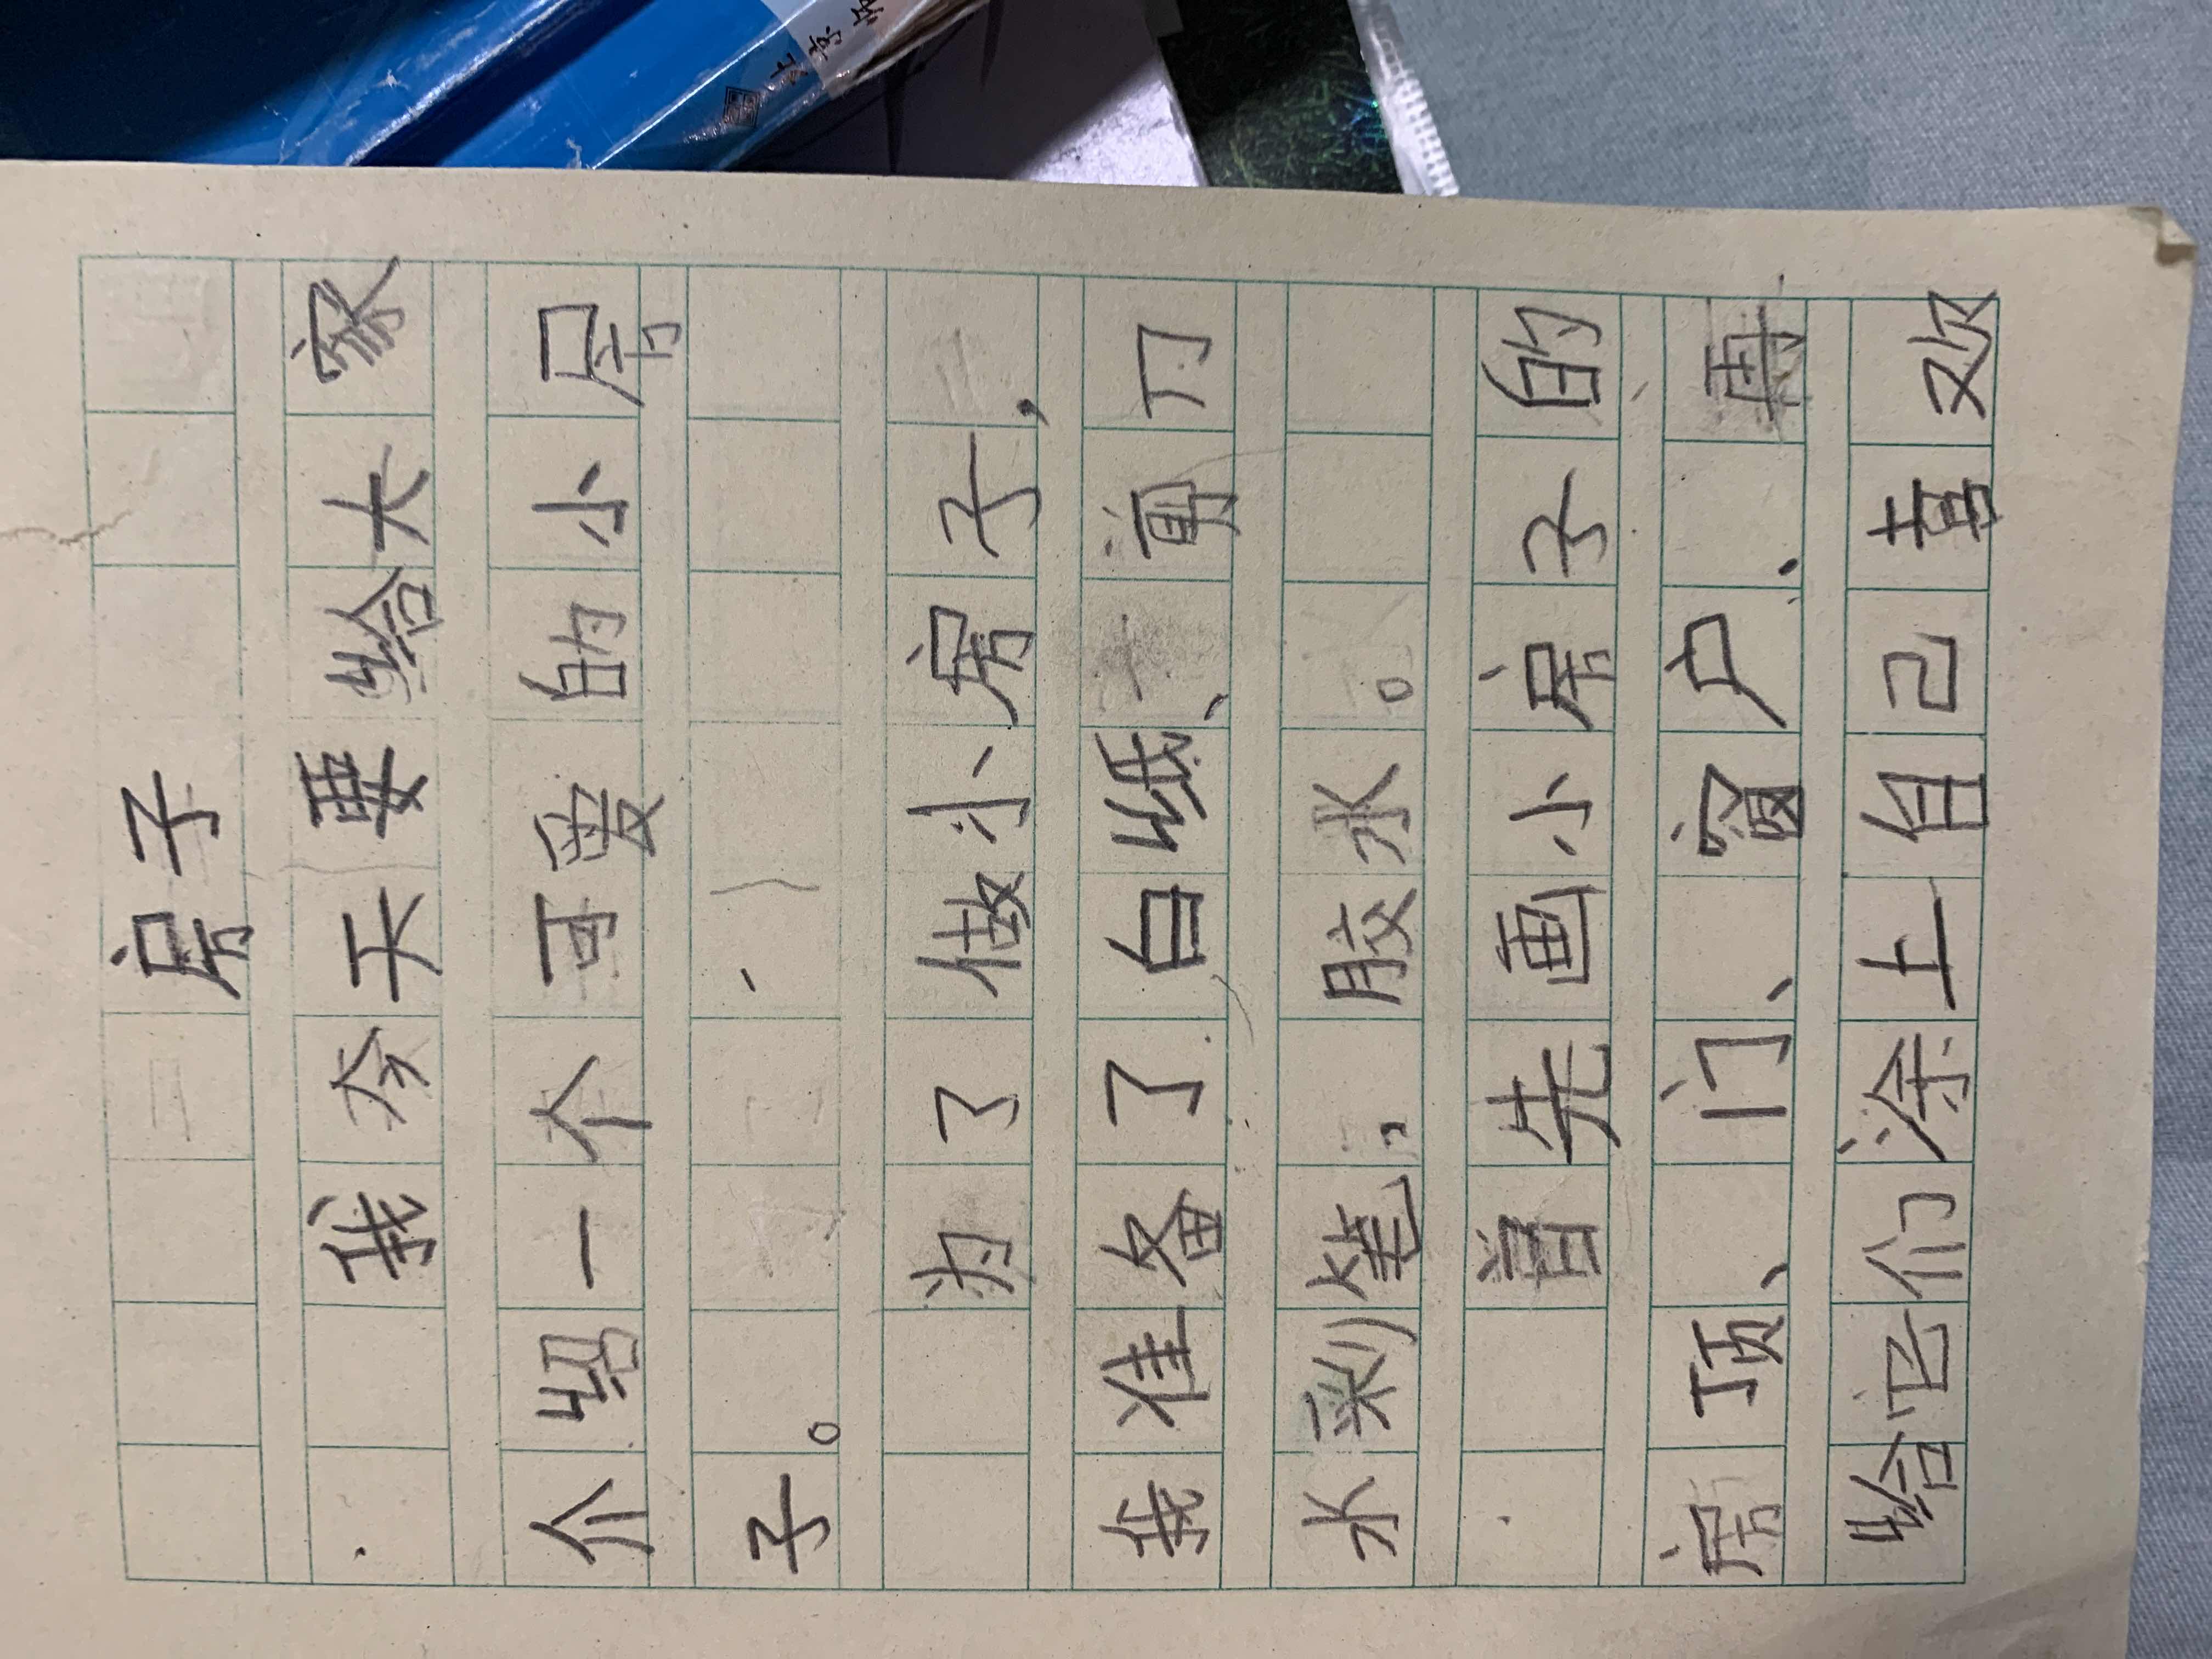 房子
我今天要给大家
介绍一个可爱的小房
子。
为了做小房子，
我准备了白纸、剪刀
水彩笔，胶水。
首先画小房子的
房顶、门、窗户、再
给它们涂上自己喜欢